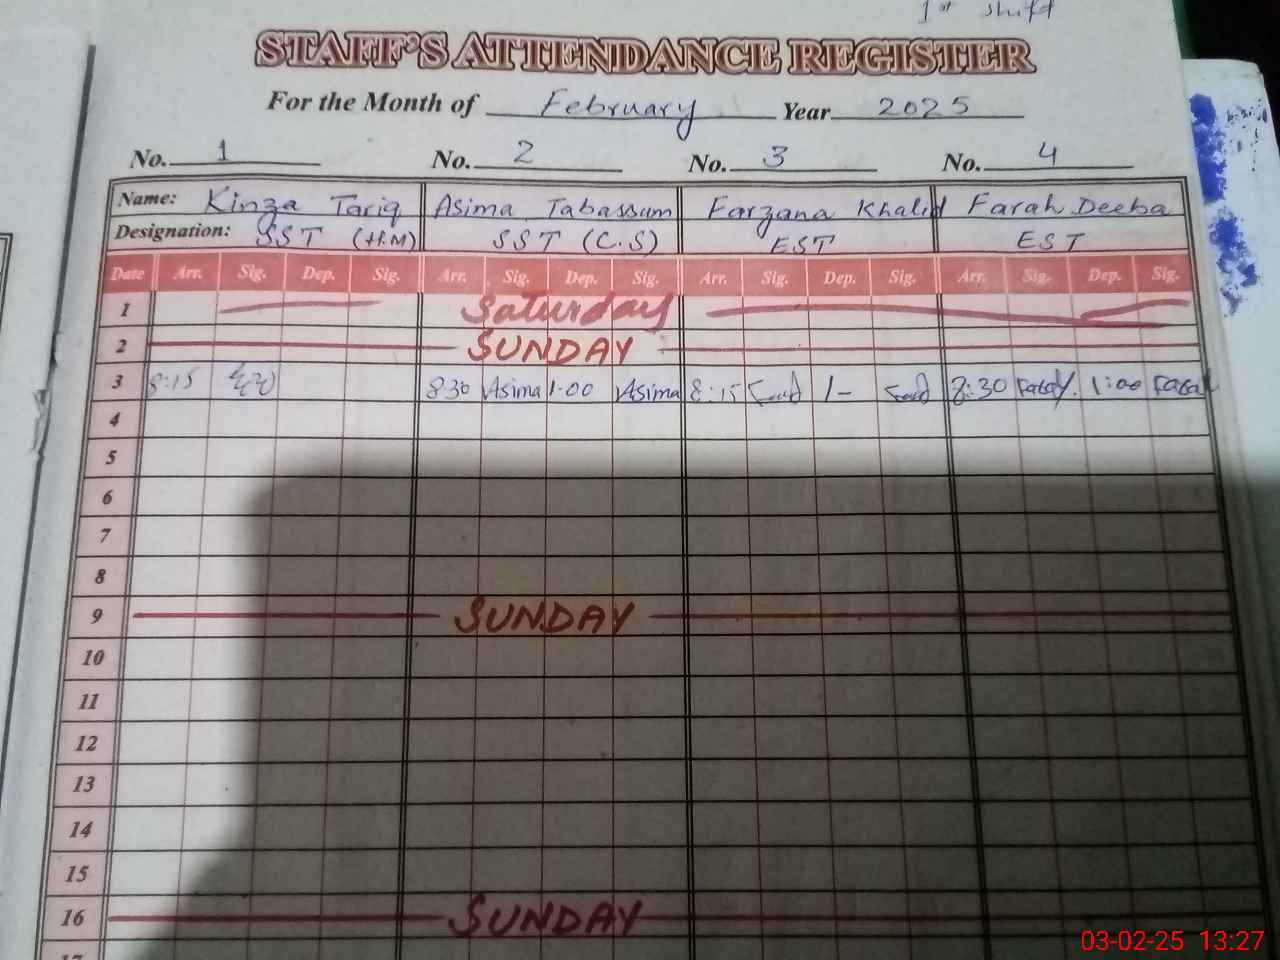 1st shift
STAFF'S ATTENDANCE REGISTER
For the Month of February Year 2025
No. 1 No. 2 No. 3 No. 4
Name: Kinza Tariq Asima Tabassum Farzana Khalid Farah Deeba
Designation: SST (H.M) SST (C.S) EST EST
Date Arr. Sig. Dep. Sig. Arr. Sig. Dep. Sig. Arr. Sig. Dep. Sig. Arr. Sig. Dep. Sig.
1 Saturday
2 SUNDAY
3 8:15 8:30 Asima 1:00 Asima 8:15 1- 8:30 1:00
4
5
6
7
8
9 SUNDAY
10
11
12
13
14
15
16 SUNDAY
17
03-02-25 13:27